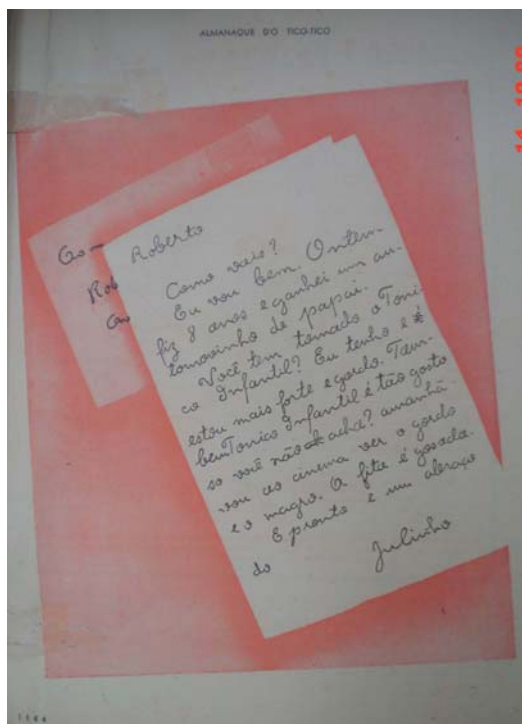 ALMANAQUE D'O TICO-TICO
Ao
Rob
Roberto
Como vais?
Eu vou bem. Ontem
fiz 8 anos e ganhei um au-
tomovinho de papai.
Você tem tomado o Toni-
co Infantil? Eu tenho e
estou mais forte e gordo. Tam-
bem Tonico Infantil é tão gosto
so você não acha? amanhã
vou ao cinema ver o gordo
e o magro. A fita é gosada.
E pronto e um abraço
do
Julinho